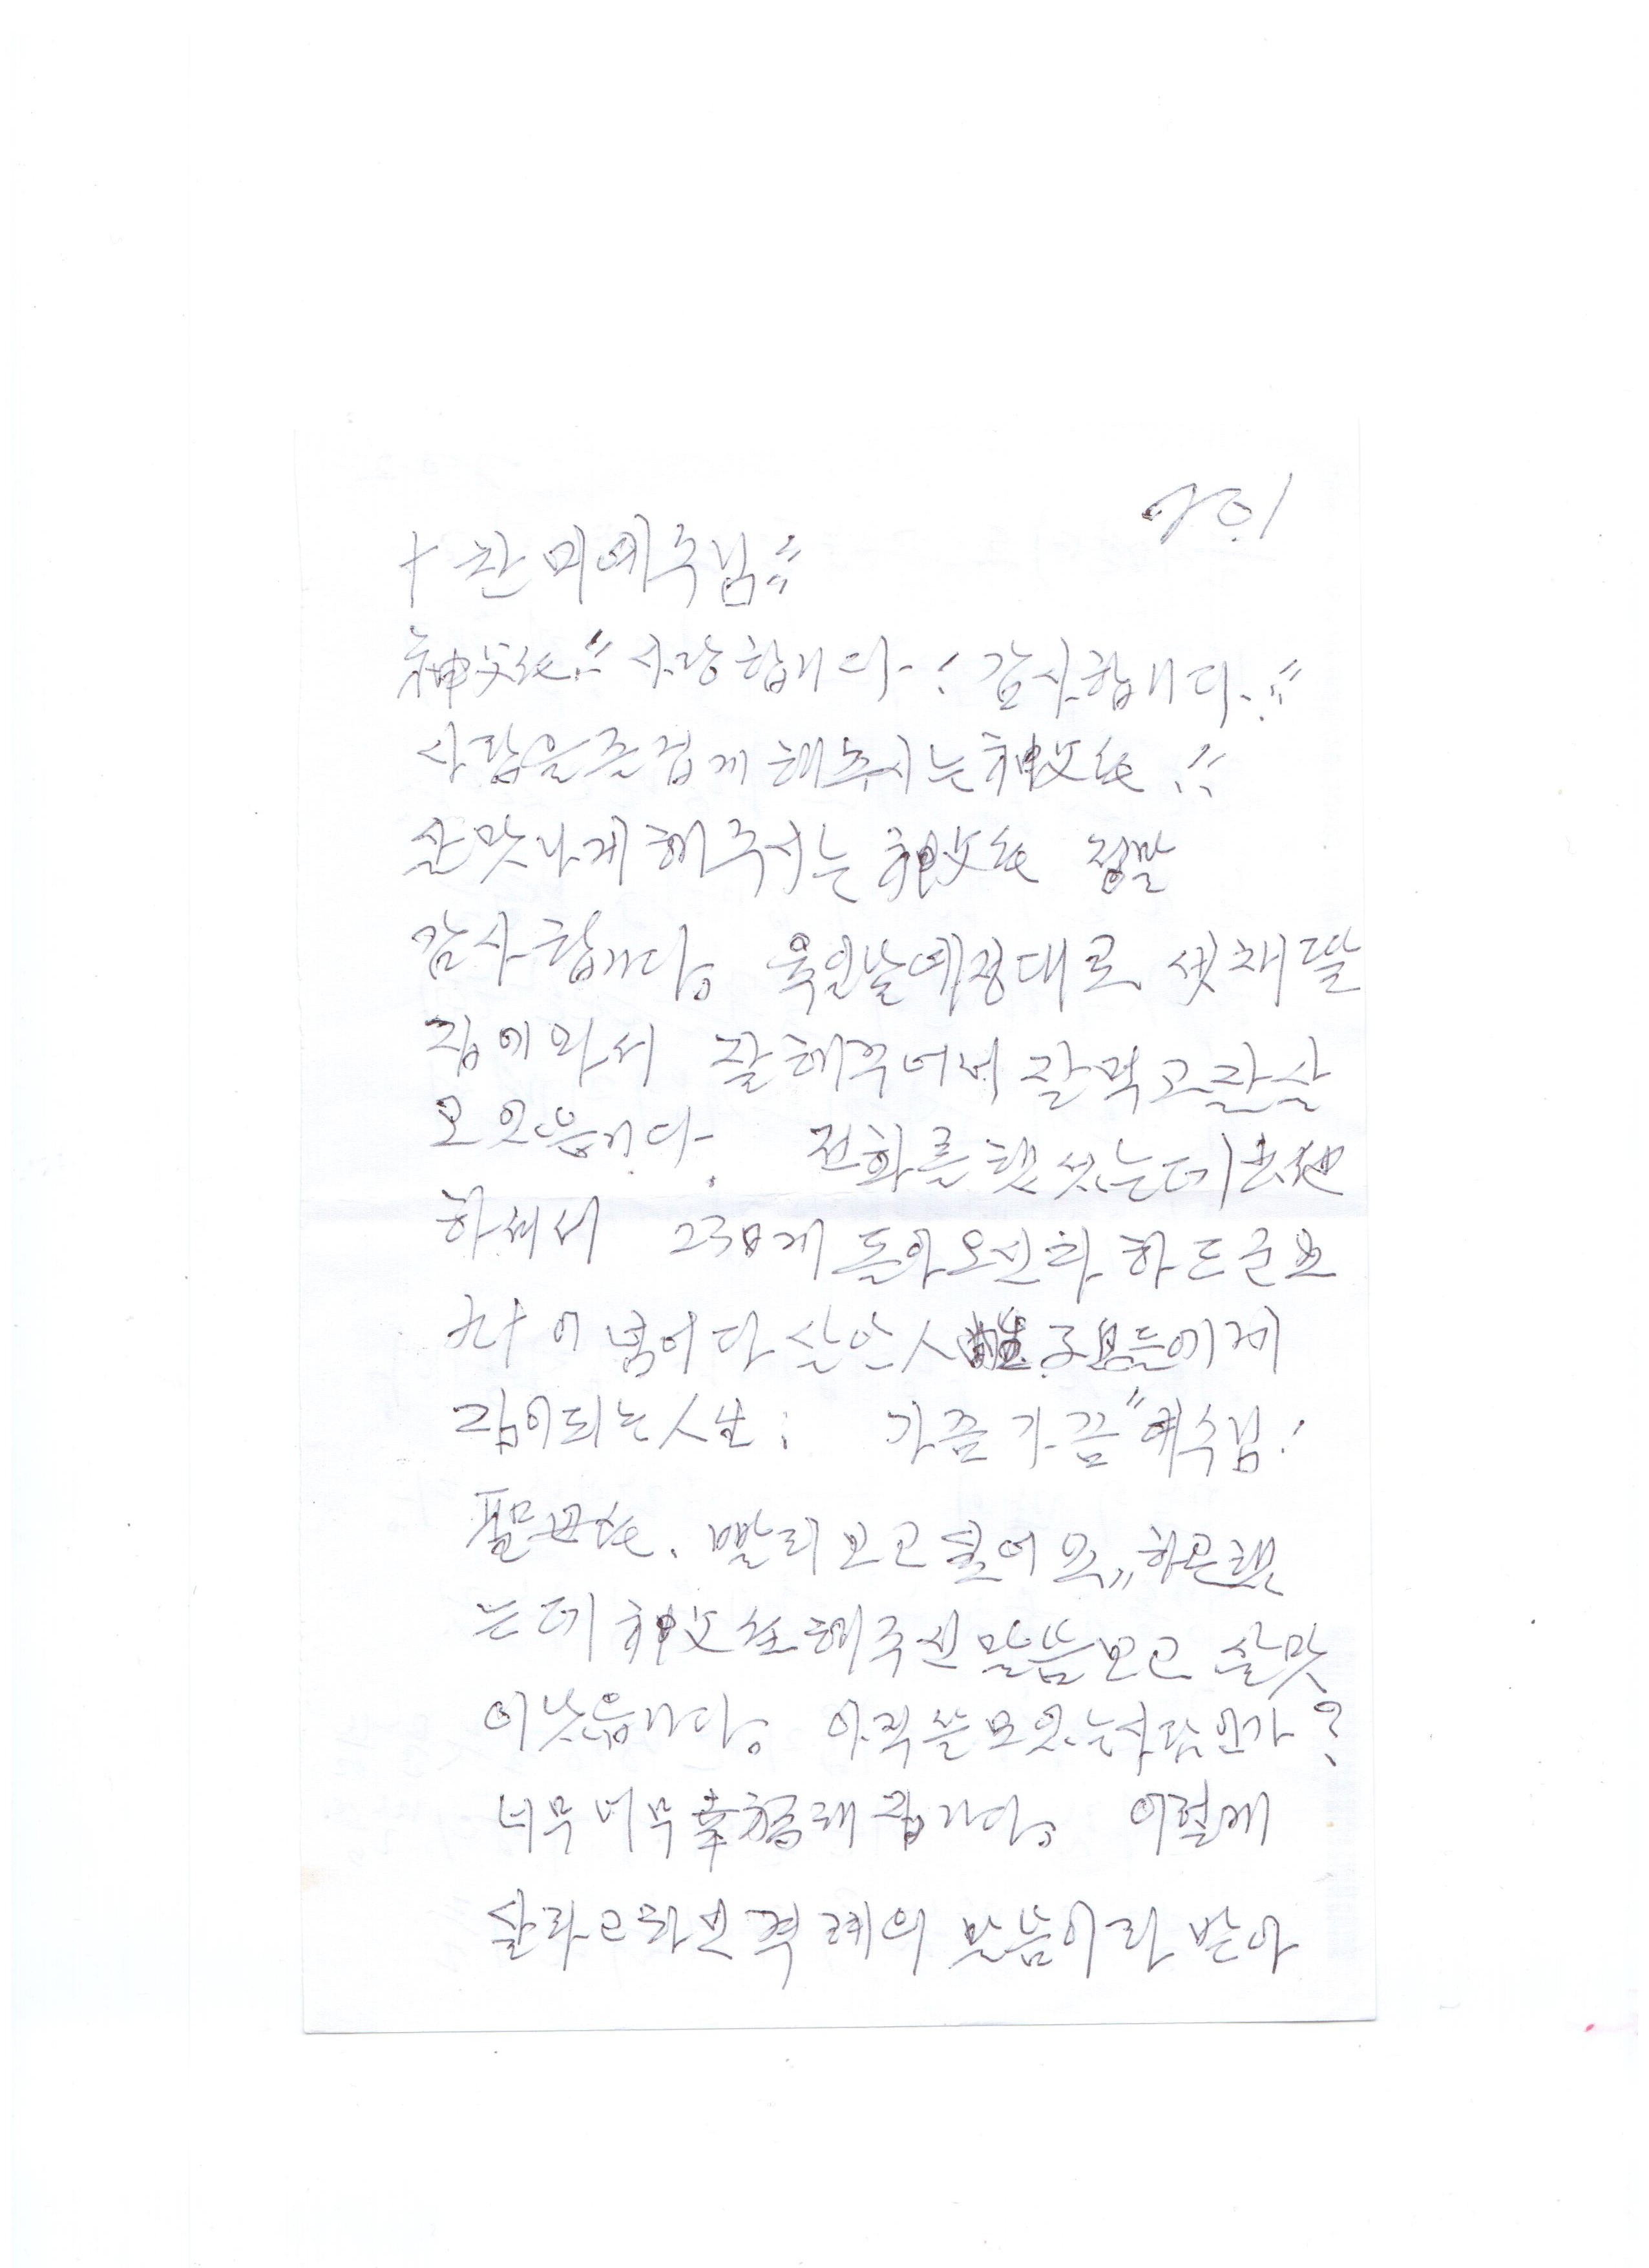 十 찬미예수님!!
神父任!! 사랑합니다! 감사합니다.!!
사람을 즐겁게 해주시는 神父任!!
살맛나게 해주시는 神父任 정말
감사합니다. 예정대로 셋채딸
집에 와서 잘해주어서 잘먹고 잘살
고 있읍니다. 전화를 했섯는데
하셔서 돌아오신다 하드군요
九十이 넘어 다 살안 人生 들에게
짐이 되는 人生! 가끔 가끔 "예수님!
聖母任. 빨리 보고 싶어요" 하곤했
는데 神父任 해주신 말씀 보고 살맛
이 낫읍니다. 아직 쓸모있는 사람인가?
너무 너무 幸福해 집니다. 이렇게
살라고 하신 격례의 말씀이라 받아